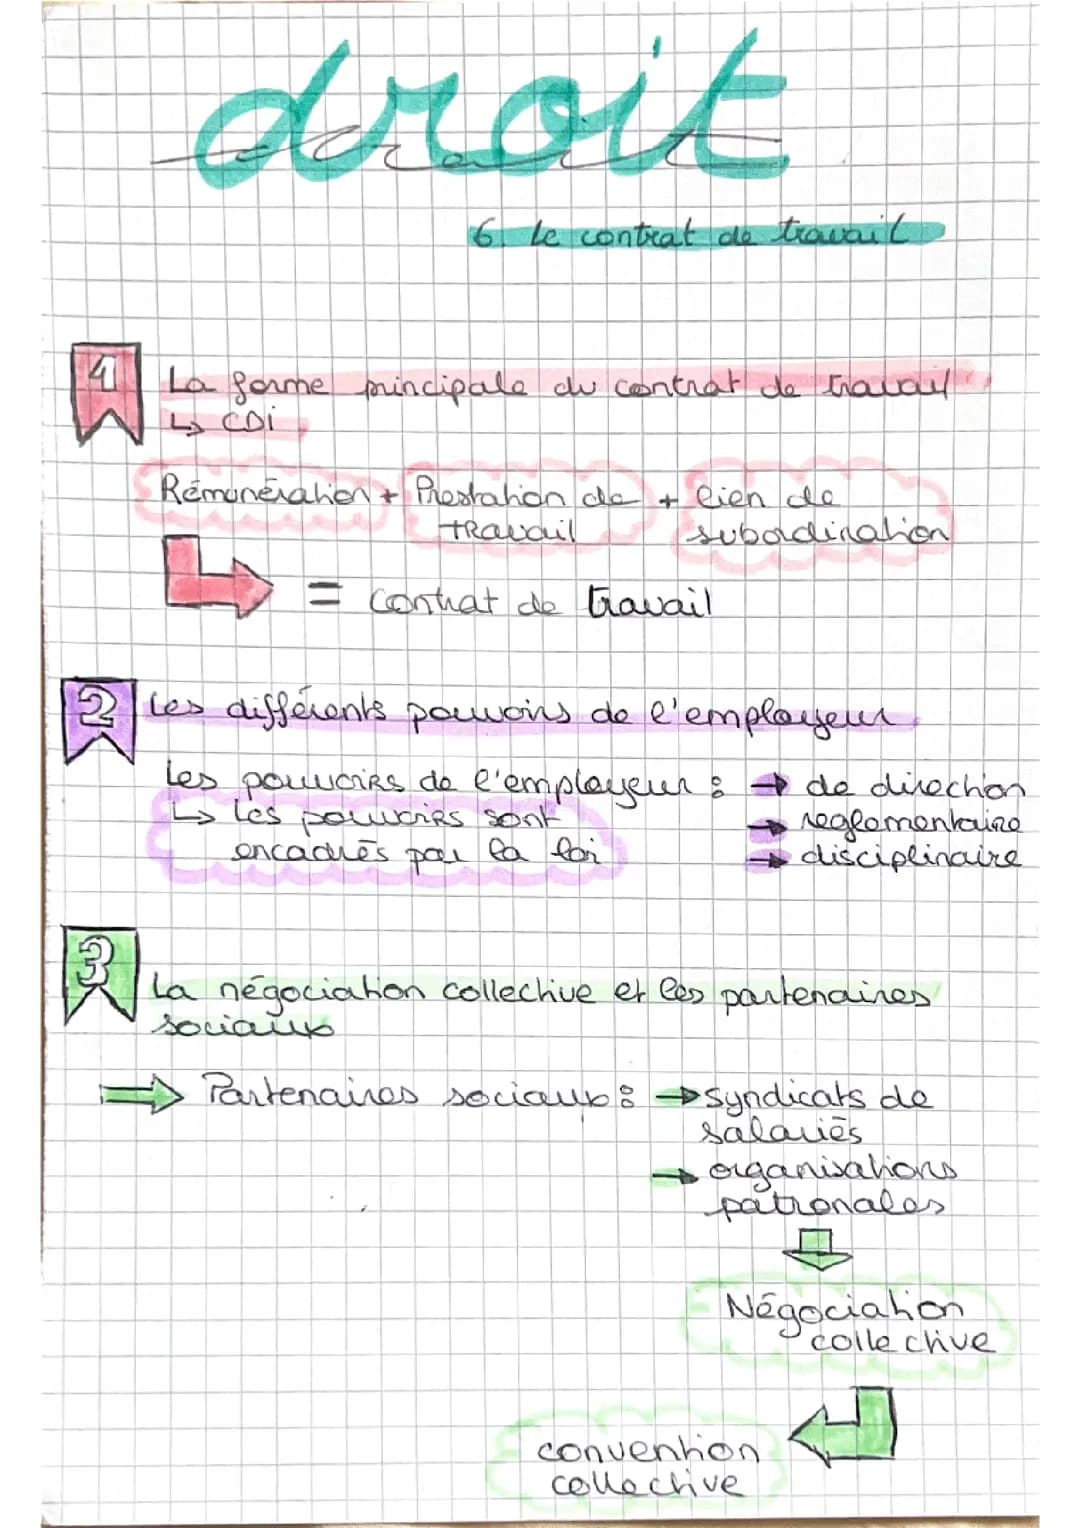 droit
droit
6. Le contrat de travail
1
La forme principale du contrat de travail
↳ CDi
Rémunération + Prestation de + lien de
travail subordination
= contrat de travail
2
Les différents pouvoirs de l'employeur
Les pouvoirs de l'employeur : → de direction
↳ Les pouvoirs sont → reglementaire
encadrés par la loi → disciplinaire
3
La négociation collective et les partenaires
sociaux
⇒ Partenaires sociaux : → syndicats de
salariés
→ organisations
patronales
Négociation
collective
convention
collective